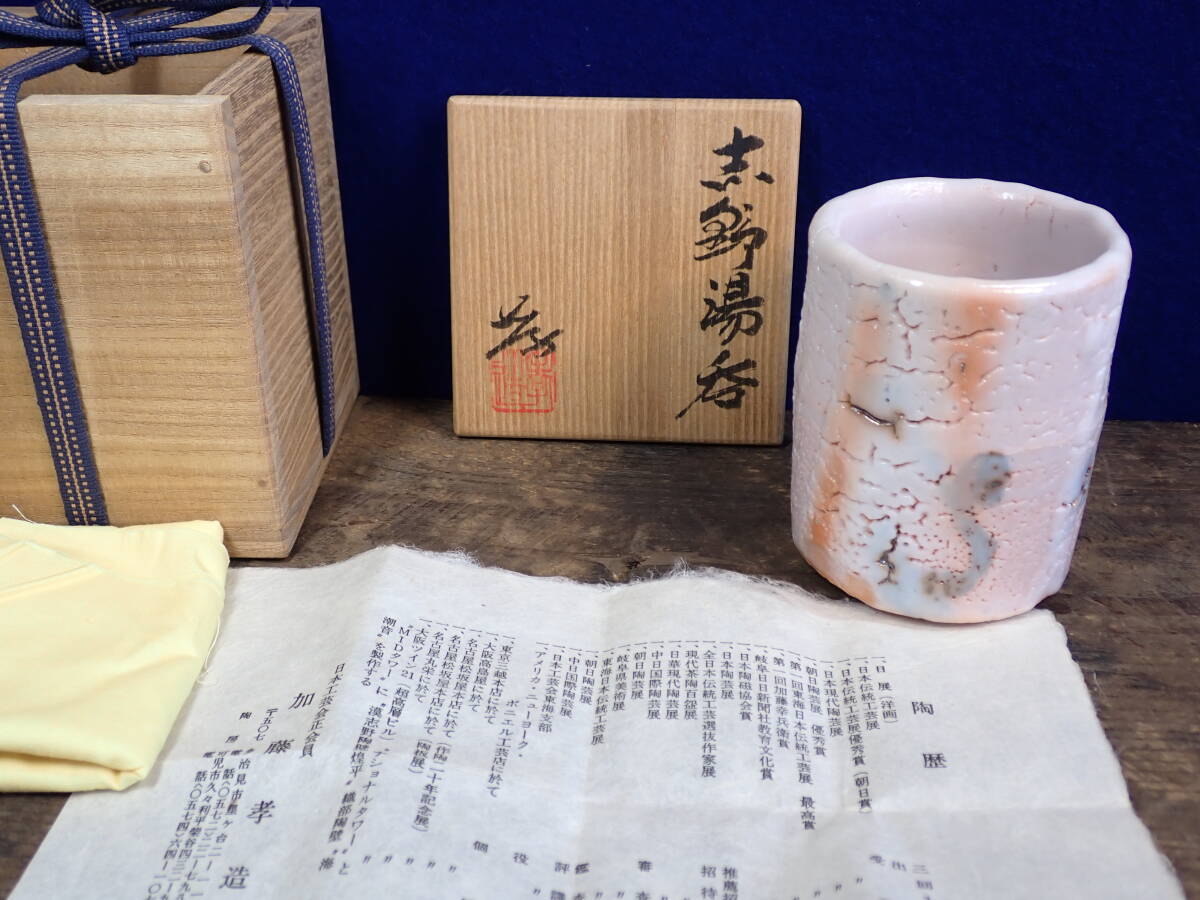 志野湯呑
孝
陶歴
一、日展(洋画)
一、日本伝統工芸展
一、日本伝統工芸展優秀賞(朝日賞)
一、日本現代陶芸展
一、朝日陶芸展 優秀賞
一、第一回東海日本伝統工芸展 最高賞
一、第一回加藤幸兵衛賞
一、岐阜日日新聞社教育文化賞
一、日本陶磁協会賞
一、日本陶芸展 推薦招
一、全日本伝統工芸選抜作家展 招待
一、現代茶陶百盌展
一、日華現代陶芸展
一、中日国際陶芸展
一、朝日陶芸展
一、岐阜県美術展
東海日本伝統工芸展
朝日陶芸展
一、中日国際陶芸展
一、日本工芸会東海支部
一、アメリカ・ニューヨーク・
ボニエル工芸店に於て
一、東京三越本店に於て
一、大阪高島屋に於て
一、名古屋松坂屋本店に於て
一、名古屋松坂屋本店に於て(作陶二十年記念展)
一、名古屋丸栄に於て(陶板展)
一、大阪ツイン21(超高層ビル)“ナショナルタワー”と
“MIDタワー”に“漢志野陶壁煌平”“織部陶壁”海
潮音”を製作する
日本工芸会正会員
加藤孝造
〒五〇七